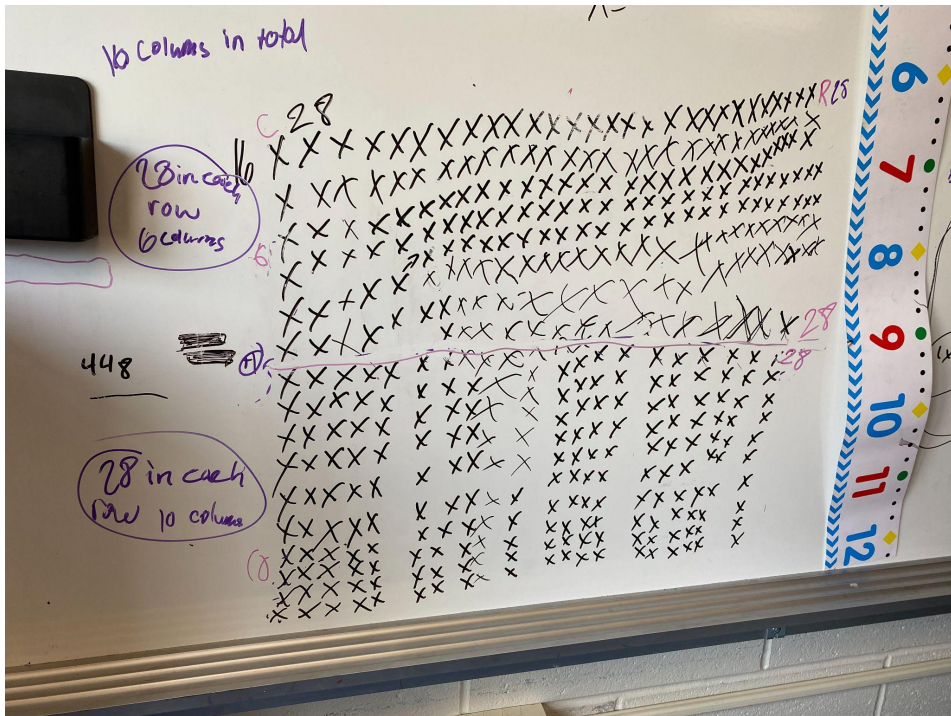 16 Colums in total
C 28
R28
16
28 in each
row
6 columns
6
28
28
448
+
28 in each
row 10 columns
10
6
7
8
9
10
11
12